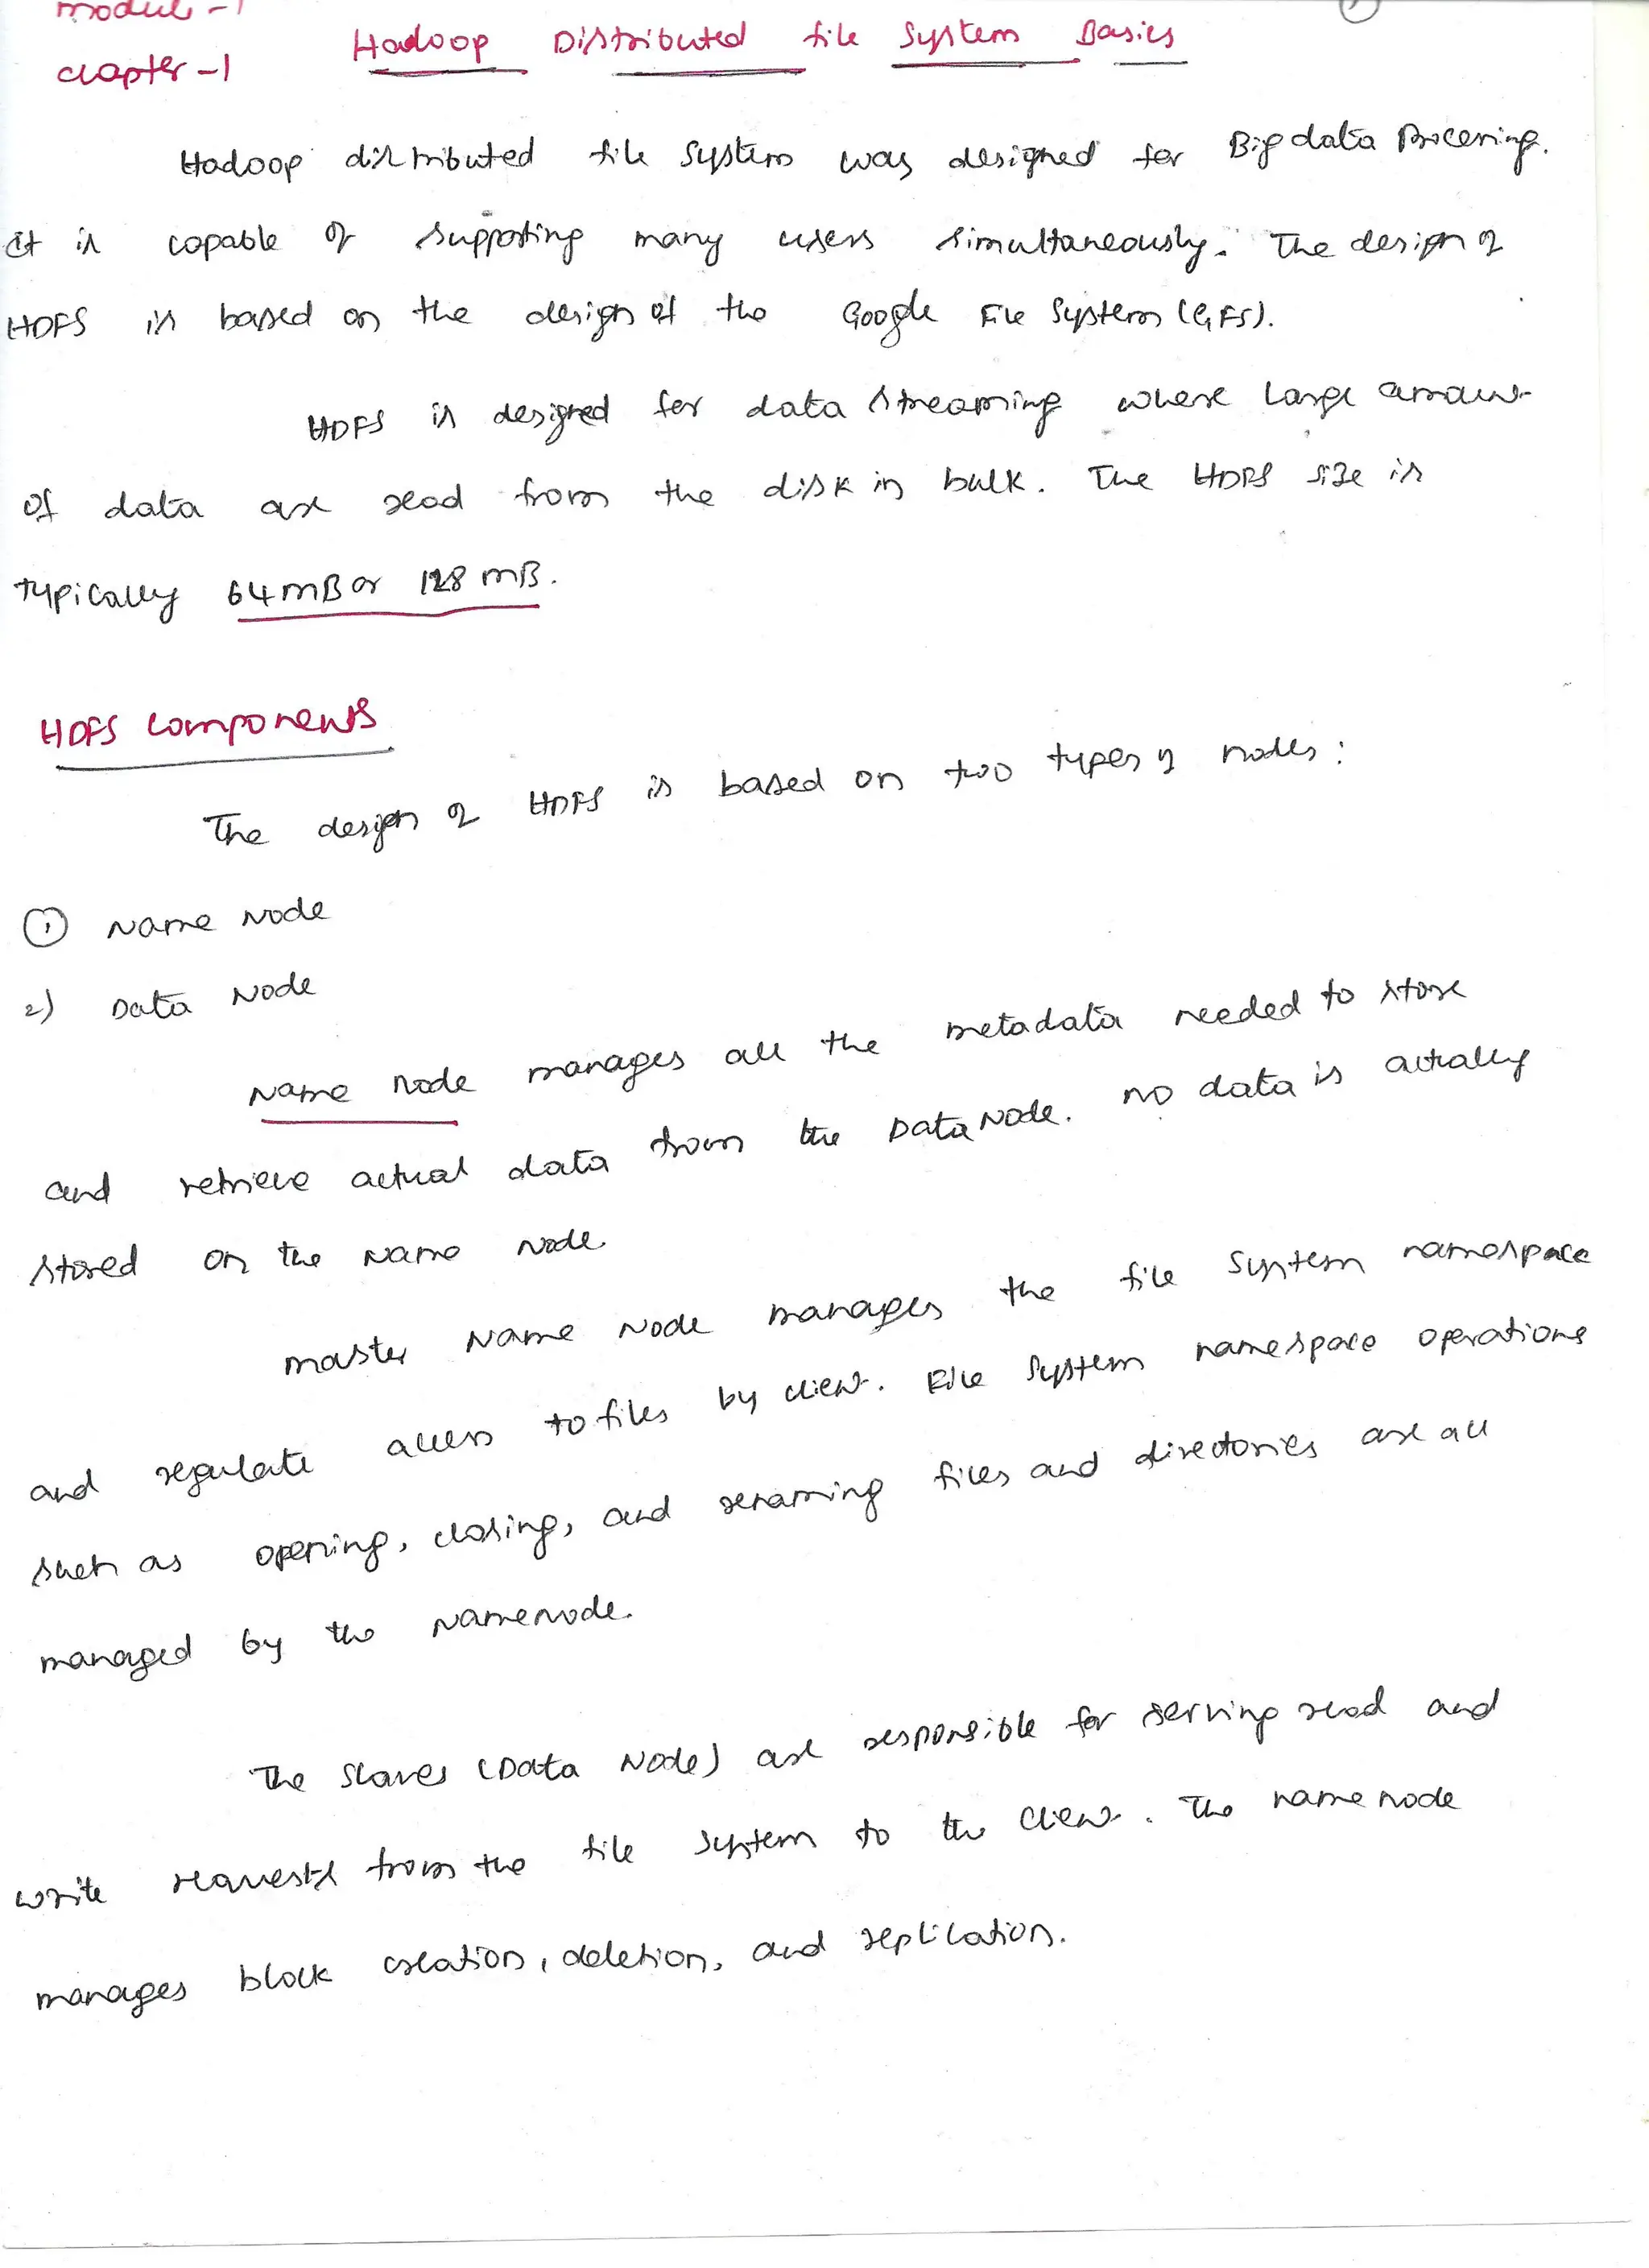 Module - 1
Chapter - 1 Hadoop Distributed file System Basics
Hadoop distributed file System was designed for Big data Processing.
it is capable of supporting many users simultaneously. The design of
HDFS is based on the design of the Google File System (GFS).
HDFS is designed for data streaming where large amount
of data are read from the disk in bulk. The HDFS size is
typically 64 MB or 128 MB.
HDFS Components
The design of HDFS is based on two types of nodes:
① Name Node
2) Data Node
Name node manages all the metadata needed to store
and retrieve actual data from the Data Node. no data is actually
stored on the Name Node.
master Name Node manages the file System namespace
and regulate access to files by client. File System namespace operations
such as opening, closing, and renaming files and directories are all
managed by the Namenode.
The Slaves (Data Node) are responsible for serving read and
write requests from the file System to the Client. The name node
manages block creation, deletion, and replication.